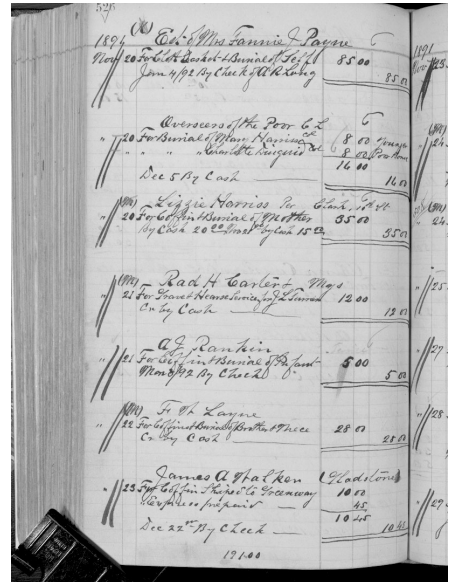 526
(W)
1891 Est of Mrs Fannie J Payne
Nov 20 For Cloth Casket & Burial of Self 85 00
Jan 4/92 By Check of A R Long 85 00
Overseers of the Poor C L
" 20 For Burial of Mary Harris 8 00
" " " Charlotte 8 00 Poor House
16 00
Dec 5 By Cash 16 00
Lizzie Harriss Per Clark
20 For Coffin & Burial of Mother 35 00
By Cash 20 00 by Cash 15 00 35 00
Rad H Carter Mgs
21 For Gravet Hearse Service for J L 12 00
Cr by Cash 12 00
A J Rankin
" 21 For Coffin & Burial of Infant 5 00
/92 By Check 5 00
Layne
22 For Coffin & Burial of Brother & Niece 28 00
Cr by Cash 28 00
James A Walker (Gladstone)
" 23 For Coffin Shiped to Greenway 10 00
Express prepaid 45
10 45
Dec 22nd By Check 10 45
191.00
1891
Nov 23
24
24
25
27
28
29